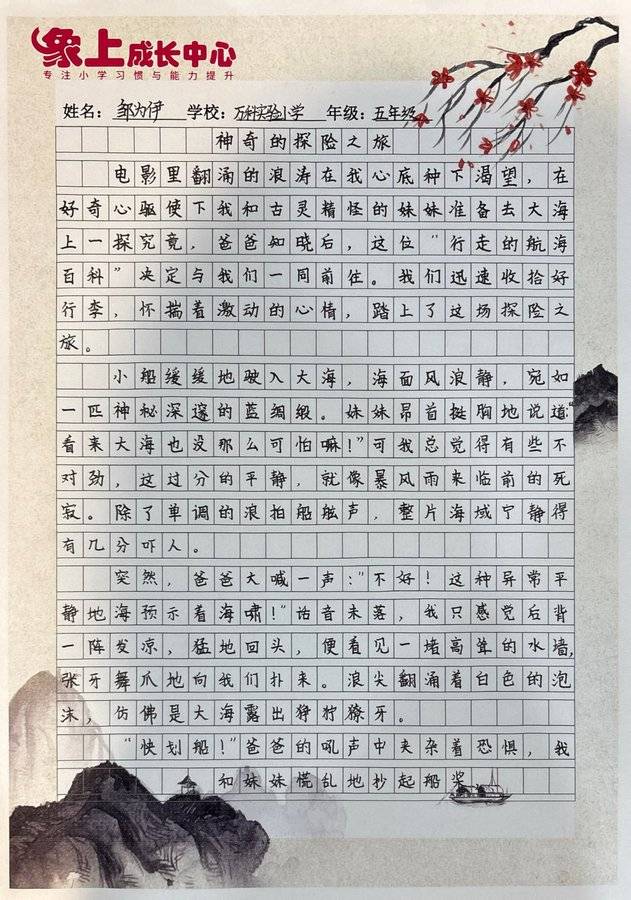 象上成长中心
专注小学习惯与能力提升
姓名：邹为伊 学校：万科实验小学 年级：五年级
神奇的探险之旅
电影里翻涌的浪涛在我心底种下渴望，在
好奇心驱使下我和古灵精怪的妹妹准备去大海
上一探究竟，爸爸知晓后，这位“行走的航海
百科”决定与我们一同前往。我们迅速收拾好
行李，怀揣着激动的心情，踏上了这场探险之
旅。
小船缓缓地驶入大海，海面风浪静，宛如
一匹神秘深邃的蓝绸缎。妹妹昂首挺胸地说道：“
看来大海也没那么可怕嘛！”可我总觉得有些不
对劲，这过分的平静，就像暴风雨来临前的死
寂。除了单调的浪拍船舷声，整片海域宁静得
有几分吓人。
突然，爸爸大喊一声：“不好！这种异常平
静地海预示着海啸！”话音未落，我只感觉后背
一阵发凉，猛地回头，便看见一堵高耸的水墙，
张牙舞爪地向我们扑来。浪尖翻涌着白色的泡
沫，仿佛是大海露出狰狞獠牙。
“快划船！”爸爸的吼声中夹杂着恐惧，我
和妹妹慌乱地抄起船桨